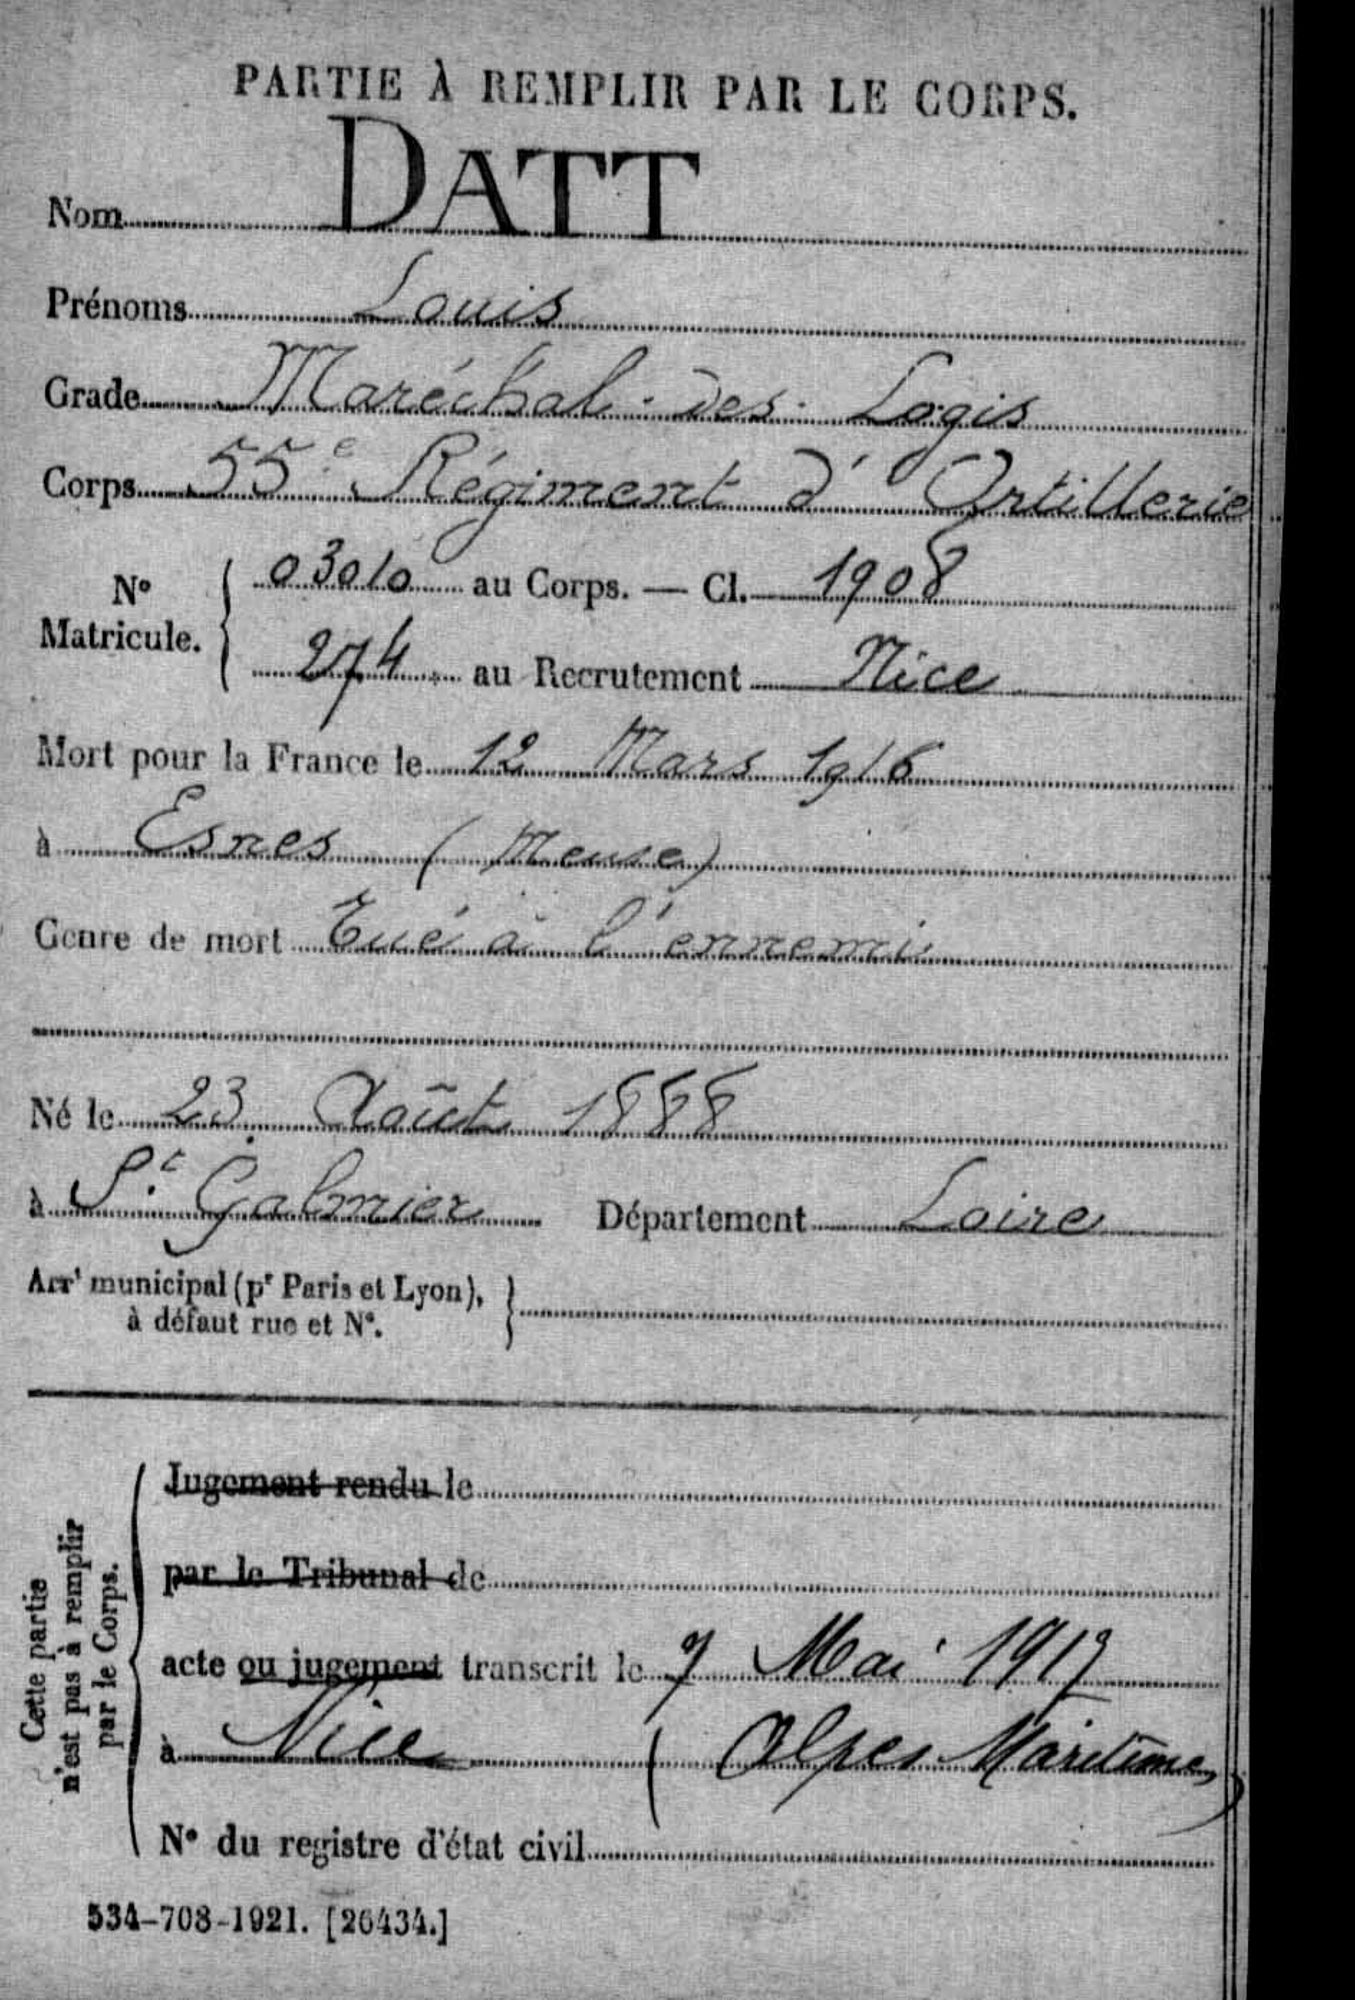 PARTIE À REMPLIR PAR LE CORPS.
Nom DATT
Prénoms Louis
Grade Maréchal-des-Logis
Corps 55e Régiment d'Artillerie
No Matricule. { 03010 au Corps. — Cl. 1908
274 au Recrutement Nice
Mort pour la France le 12 Mars 1916
à Esnes (Meuse)
Genre de mort Tué à l'ennemi
Né le 23 Août 1888
à St. Galmier Département Loire
Arrt municipal (pr Paris et Lyon),
à défaut rue et No.
Cette partie
n'est pas à remplir
par le Corps.
Jugement rendu le
par le Tribunal de
acte ou jugement transcrit le 7 Mai 1917
à Nice (Alpes Maritimes)
No du registre d'état civil
534-708-1921. [26434.]